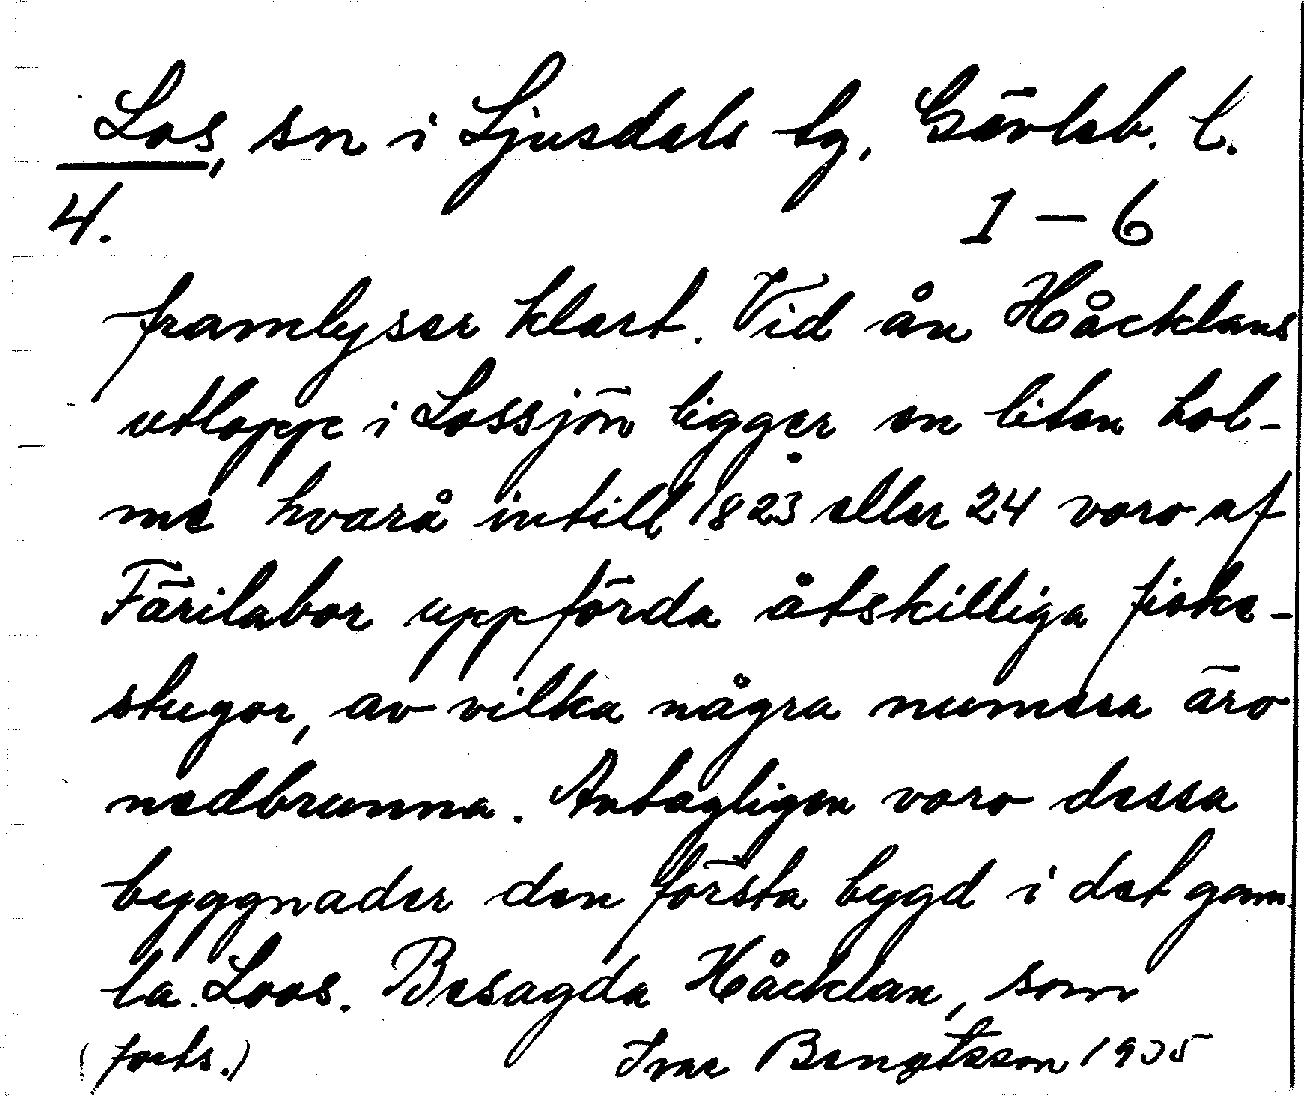 Los, sn i Ljusdals tg, Gävleb. l.
4. 1-6
framlyser klart. Vid ån Håcklans
utlopp i Lossjön ligger en liten hol-
me hvarå intill 1823 eller 24 voro af
Färilabor uppförda åtskilliga fiske-
stugor, av vilka några numera äro
nedbrunna. Antagligen voro dessa
byggnader den första bygd i det gam
la Loos. Besagda Håcklan, som
(forts.) Ivar Bengtsson 1935